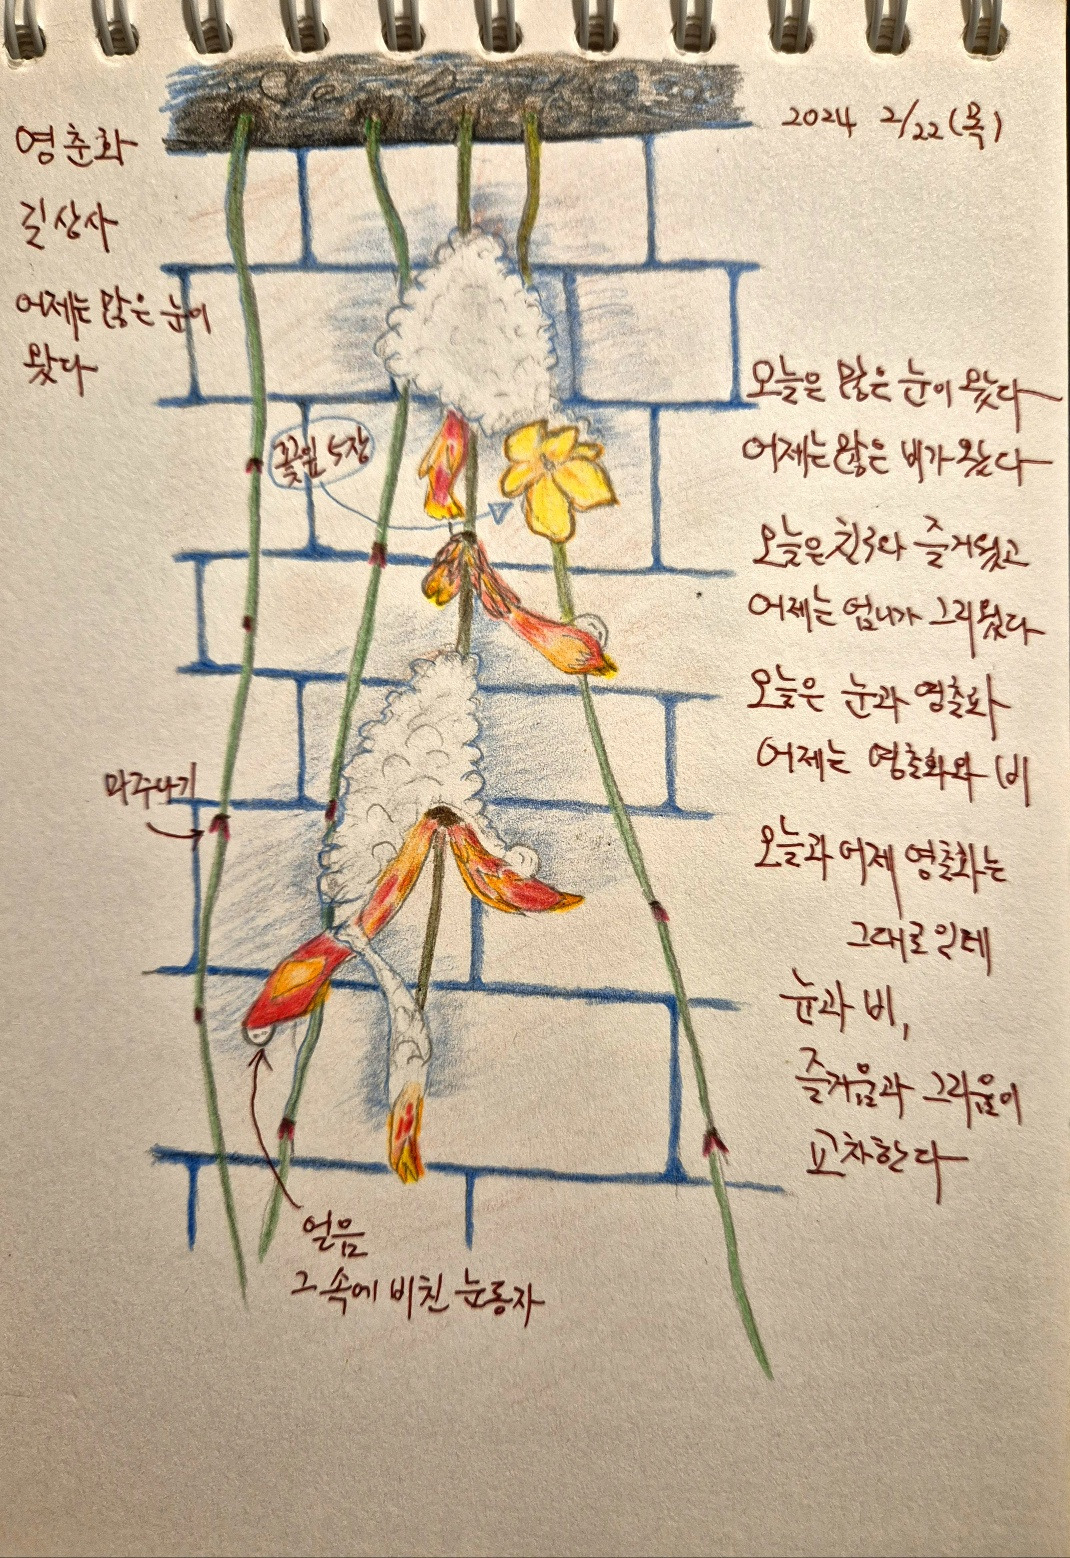 2024 2/22 (목)
영춘화
길상사
어제는 많은 눈이
왔다
꽃잎 5장
마주나기
얼음
그 속에 비친 눈동자
오늘은 많은 눈이 왔다
어제는 많은 비가 왔다
오늘은 친구와 즐거웠고
어제는 엄니가 그리웠다
오늘은 눈과 영춘화
어제는 영춘화와 비
오늘과 어제 영춘화는
그대로인데
눈과 비,
즐거움과 그리움이
교차한다